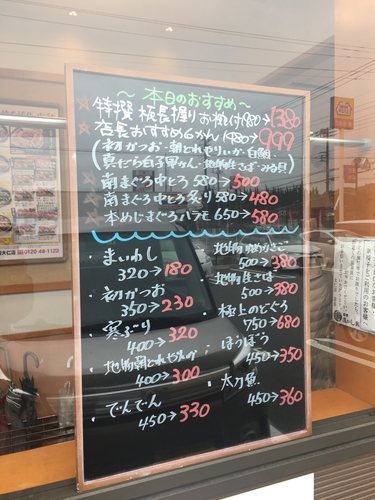 ～本日のおすすめ～
特撰 板長握り お椀付 1880→1380
店長おすすめ6かん 1480→999
初かつお・朝とれやりいか・白鯛・
真だら白子軍かん・地物生さば・みる貝
南まぐろ中とろ 580→500
南まぐろ中とろ炙り 580→480
本めじまぐろハラモ 650→580
・まいわし
320→180
・初かつお
350→230
・寒ぶり
400→320
・地物朝とれやりいか
400→300
・でんでん
450→330
・地物
500→380
・地物生さば
500→380
・極上のどぐろ
750→680
・ほうぼう
450→350
・太刀魚
450→360
0120-48-1122